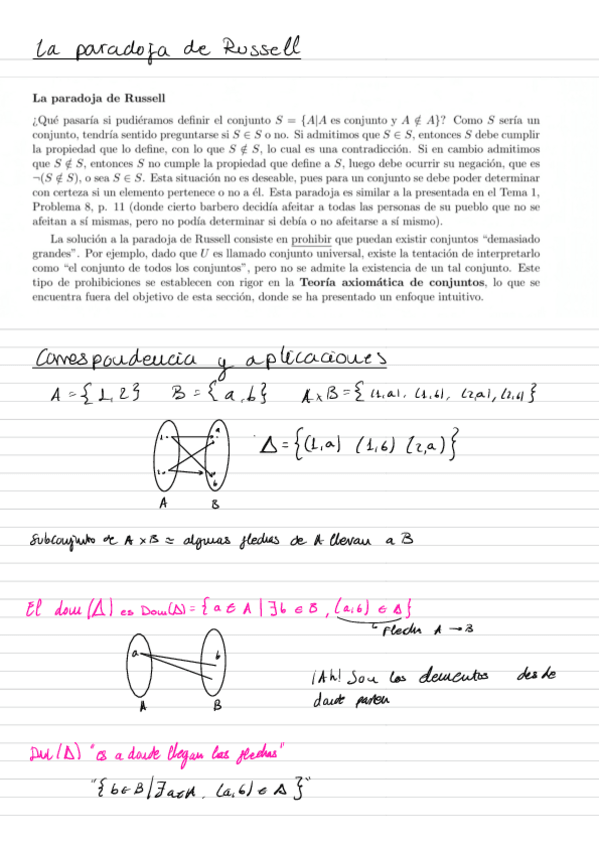 La paradoja de Russell
La paradoja de Russell
¿Qué pasaría si pudiéramos definir el conjunto S = {A|A es conjunto y A ∉ A}? Como S sería un
conjunto, tendría sentido preguntarse si S ∈ S o no. Si admitimos que S ∈ S, entonces S debe cumplir
la propiedad que lo define, con lo que S ∉ S, lo cual es una contradicción. Si en cambio admitimos
que S ∉ S, entonces S no cumple la propiedad que define a S, luego debe ocurrir su negación, que es
¬(S ∉ S), o sea S ∈ S. Esta situación no es deseable, pues para un conjunto se debe poder determinar
con certeza si un elemento pertenece o no a él. Esta paradoja es similar a la presentada en el Tema 1,
Problema 8, p. 11 (donde cierto barbero decidía afeitar a todas las personas de su pueblo que no se
afeitan a sí mismas, pero no podía determinar si debía o no afeitarse a sí mismo).
La solución a la paradoja de Russell consiste en prohibir que puedan existir conjuntos “demasiado
grandes”. Por ejemplo, dado que U es llamado conjunto universal, existe la tentación de interpretarlo
como “el conjunto de todos los conjuntos”, pero no se admite la existencia de un tal conjunto. Este
tipo de prohibiciones se establecen con rigor en la Teoría axiomática de conjuntos, lo que se
encuentra fuera del objetivo de esta sección, donde se ha presentado un enfoque intuitivo.
Correspondencia y aplicaciones
A = {1,2} B = {a,b} A×B = {(1,a), (1,b), (2,a), (2,b)}
Δ = {(1,a) (1,b) (2,a)}
A B
Subconjunto de A×B ≈ algunas flechas de A llevan a B
El dom(Δ) es Dom(Δ) = {a ∈ A | ∃b ∈ B, (a,b) ∈ Δ}
flecha A → B
a b
¡Ah! Son los elementos desde
donde parten
A B
(Δ) "es a donde llegan las flechas"
"{b ∈ B / ∃a∈A, (a,b) ∈ Δ}"